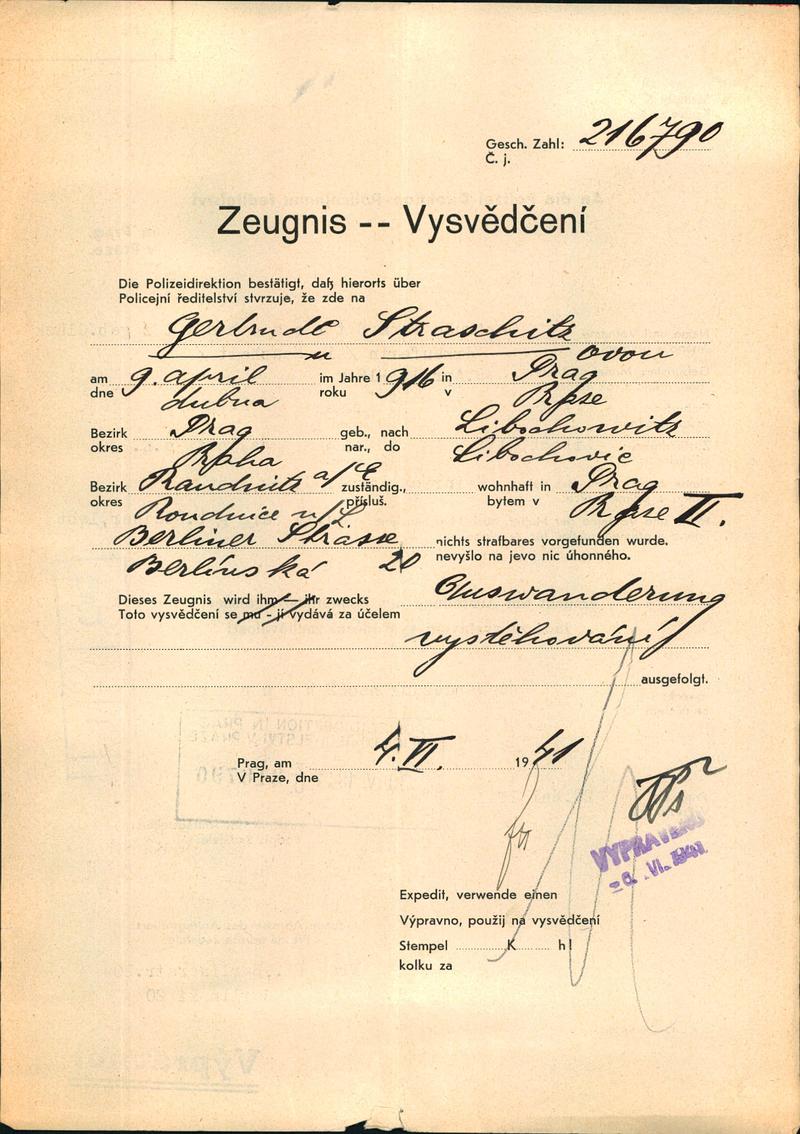 Gesch. Zahl: 216790
Č. j.
Zeugnis -- Vysvědčení
Die Polizeidirektion bestätigt, daß hierorts über
Policejní ředitelství stvrzuje, že zde na
Gertrude Straschitz
u ovou
am 9. april im Jahre 1916 in Prag
dne dubna roku v Praze
Bezirk Prag geb., nach Libochowitz
okres Praha nar., do Libochovic
Bezirk Raudnitz a/E zuständig., wohnhaft in Prag
okres Roudnice n/L přísluš. bytem v Praze II.
Berliner Strasse nichts strafbares vorgefunden wurde.
Berlínská 20 nevyšlo na jevo nic úhonného.
Dieses Zeugnis wird ihm — ihr zwecks Auswanderung
Toto vysvědčení se mu - jí vydává za účelem
vystěhování
ausgefolgt.
Prag, am 4. VI. 1941
V Praze, dne
VYPRAVENO
- 6. VI. 1941
Expedit, verwende einen
Výpravno, použij na vysvědčení
Stempel K h!
kolku za